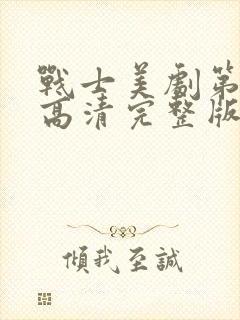 戰士美劇第
高清完整版
傾我至誠